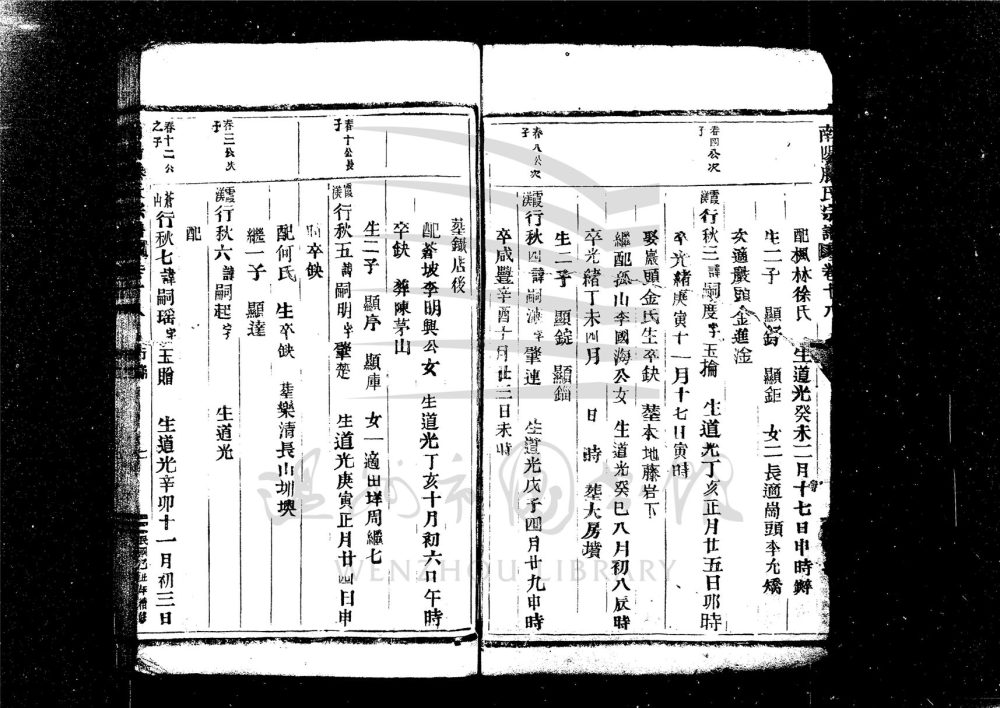 配楓林徐氏 生道光癸未二月十七日申時
生二子 顯 顯鉅 女二長適崗頭李允矯
女適嚴頭金進淦
春四公次子
霞漈行秋三諱嗣度字玉掄 生道光丁亥正月廿五日卯時
卒光緒庚寅十一月十七日寅時
娶嚴頭金氏生卒缺 塟本地藤岩下
繼配孤山李國海公女 生道光癸巳八月初八辰時
卒光緒丁未四月 日 時 塟大房墳
生二子 顯錠 顯錙
春八公次子
霞漈行秋四諱嗣 字肇連 生道光戊子四月廿九申時
卒咸豐辛酉十月廿三日未時
塟鐵店後
配蒼坡李明興公女 生道光丁亥十月初六日午時
卒缺 葬陳茅山
生二子 顯序 顯庫 女一適田垟周繼七
春十公長子
霞漈行秋五諱嗣明字肇楚 生道光庚寅正月廿四日申
時卒缺
配何氏 生卒缺 塟樂清長山圳㘭
繼一子 顯達
春三公次子
霞漈行秋六諱嗣起字 生道光
配
春十二公之子
蒼山行秋七諱嗣瑶字玉贈 生道光辛卯十一月初三日
民國己丑年續修
WENZHOU LIBRARY